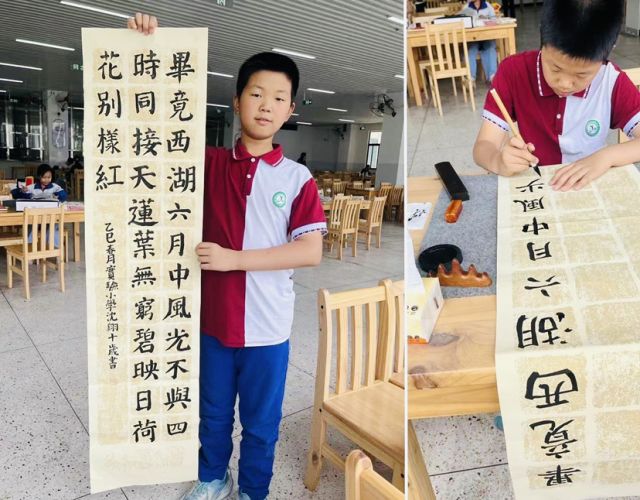 畢竟西湖六月中風光不與四
時同接天蓮葉無窮碧映日荷
花別樣紅
乙巳春月實驗小學沈翊十歲書
畢竟西湖六月中風光